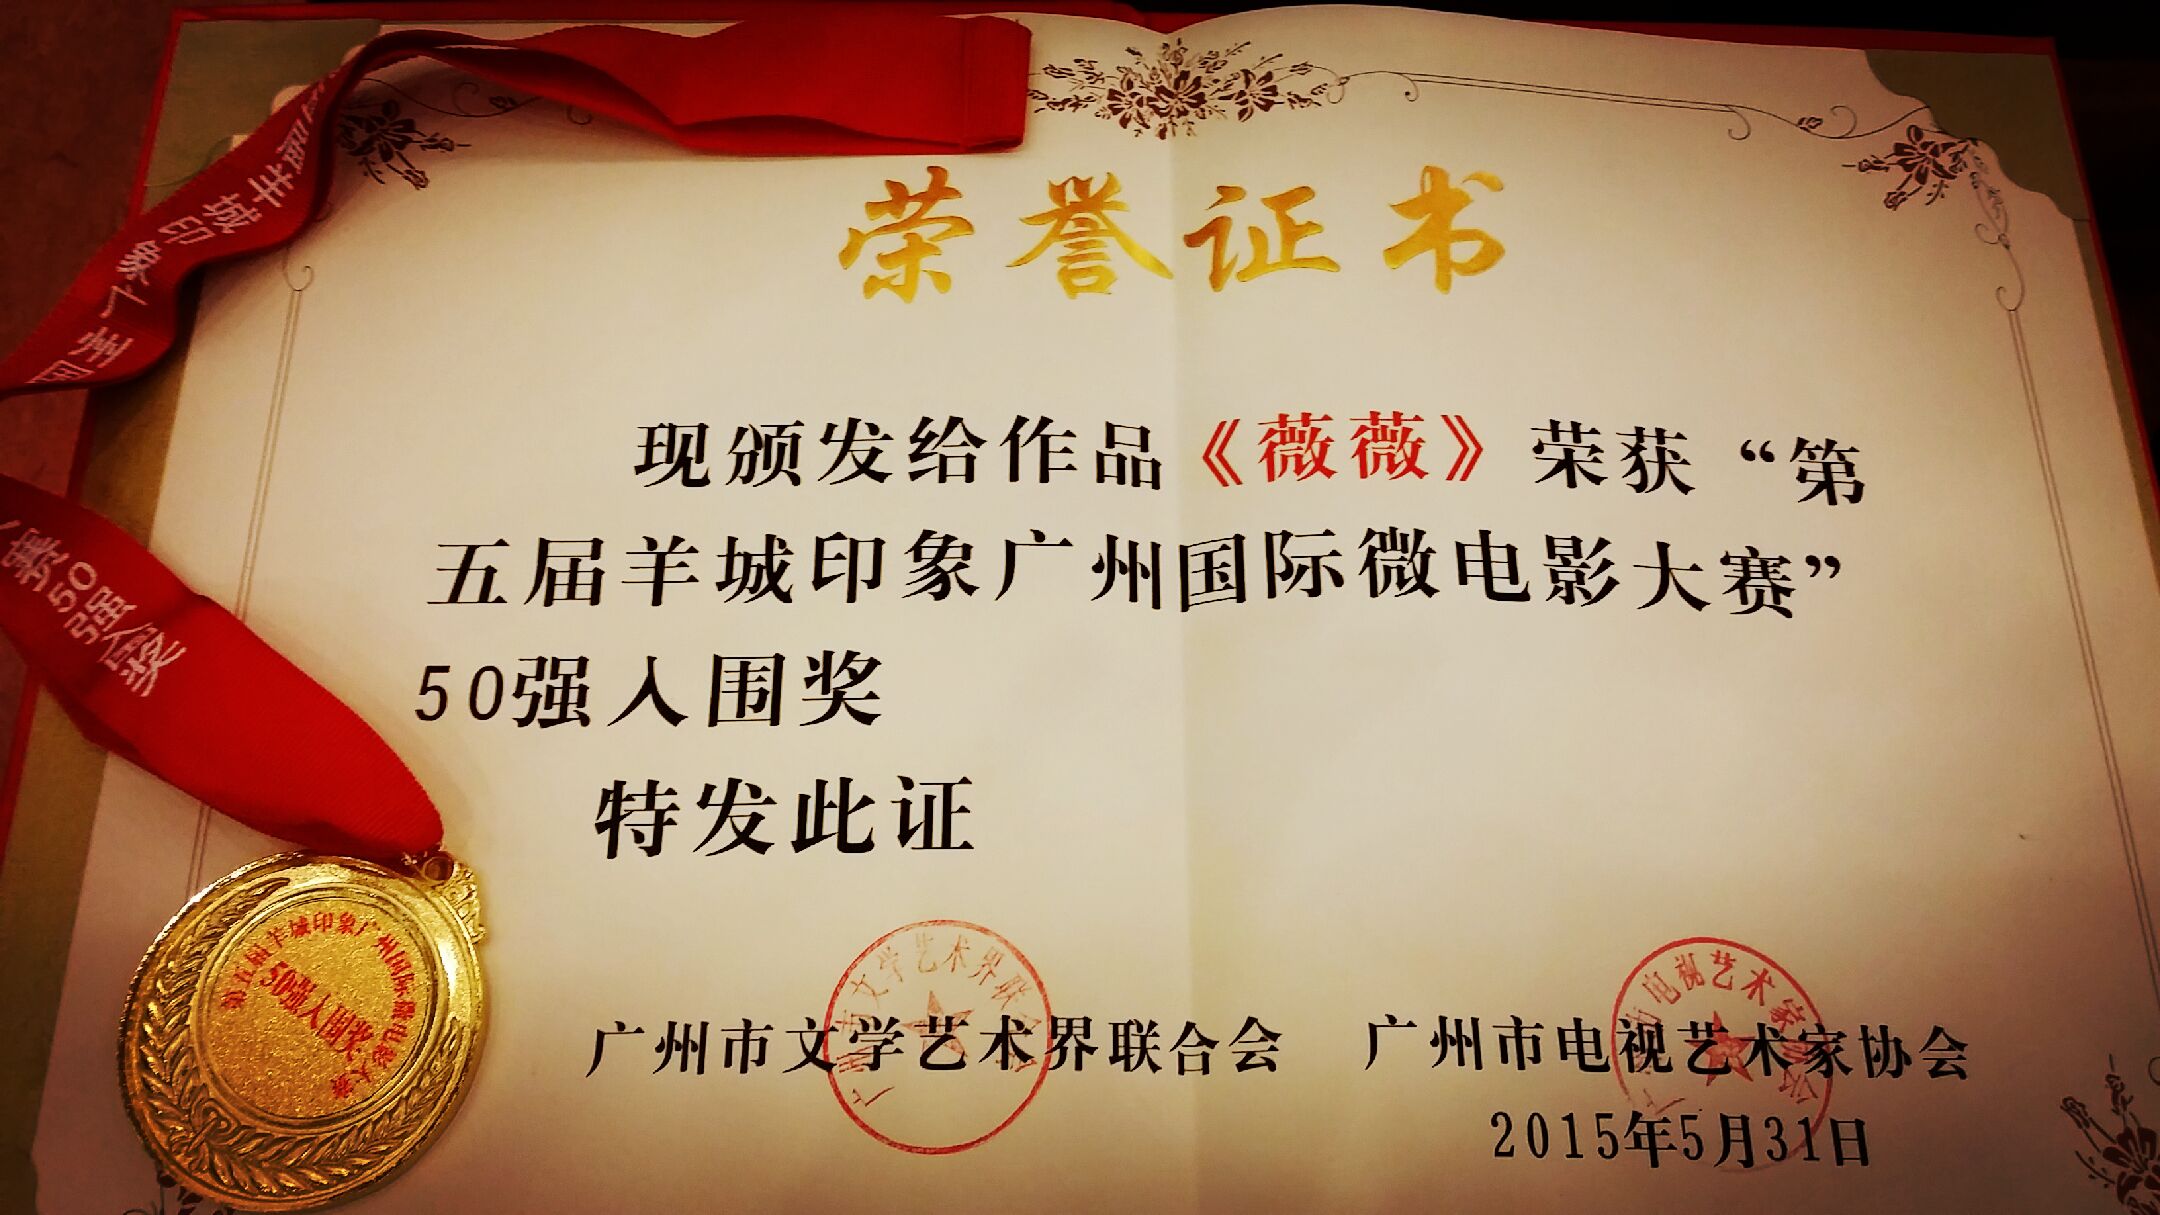 荣誉证书
现颁发给作品《薇薇》荣获“第
五届羊城印象广州国际微电影大赛”
50强入围奖
特发此证
广州市文学艺术界联合会 广州市电视艺术家协会
2015年5月31日
届羊城印象广州国
赛50强奖
第五届羊城印象广州国际微电影大赛
50强入围奖
广州市文学艺术界联合会
市电视艺术家协会